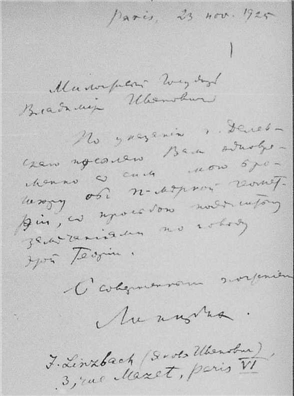 Paris, 23 nov. 1925
Милостивый Государь
Владимир Иванович
По указанію г. Делев-
скаго посылаю Вам одновре-
менно с сим мою бро-
шюру об n-мерной геомет-
ріи, с просьбою поделиться
замечаніями по поводу
этой теоріи.
С совершенным почтеніем
Линцбах.
J. Linzbach (Яков Иванович),
3, rue Mazet, Paris VI